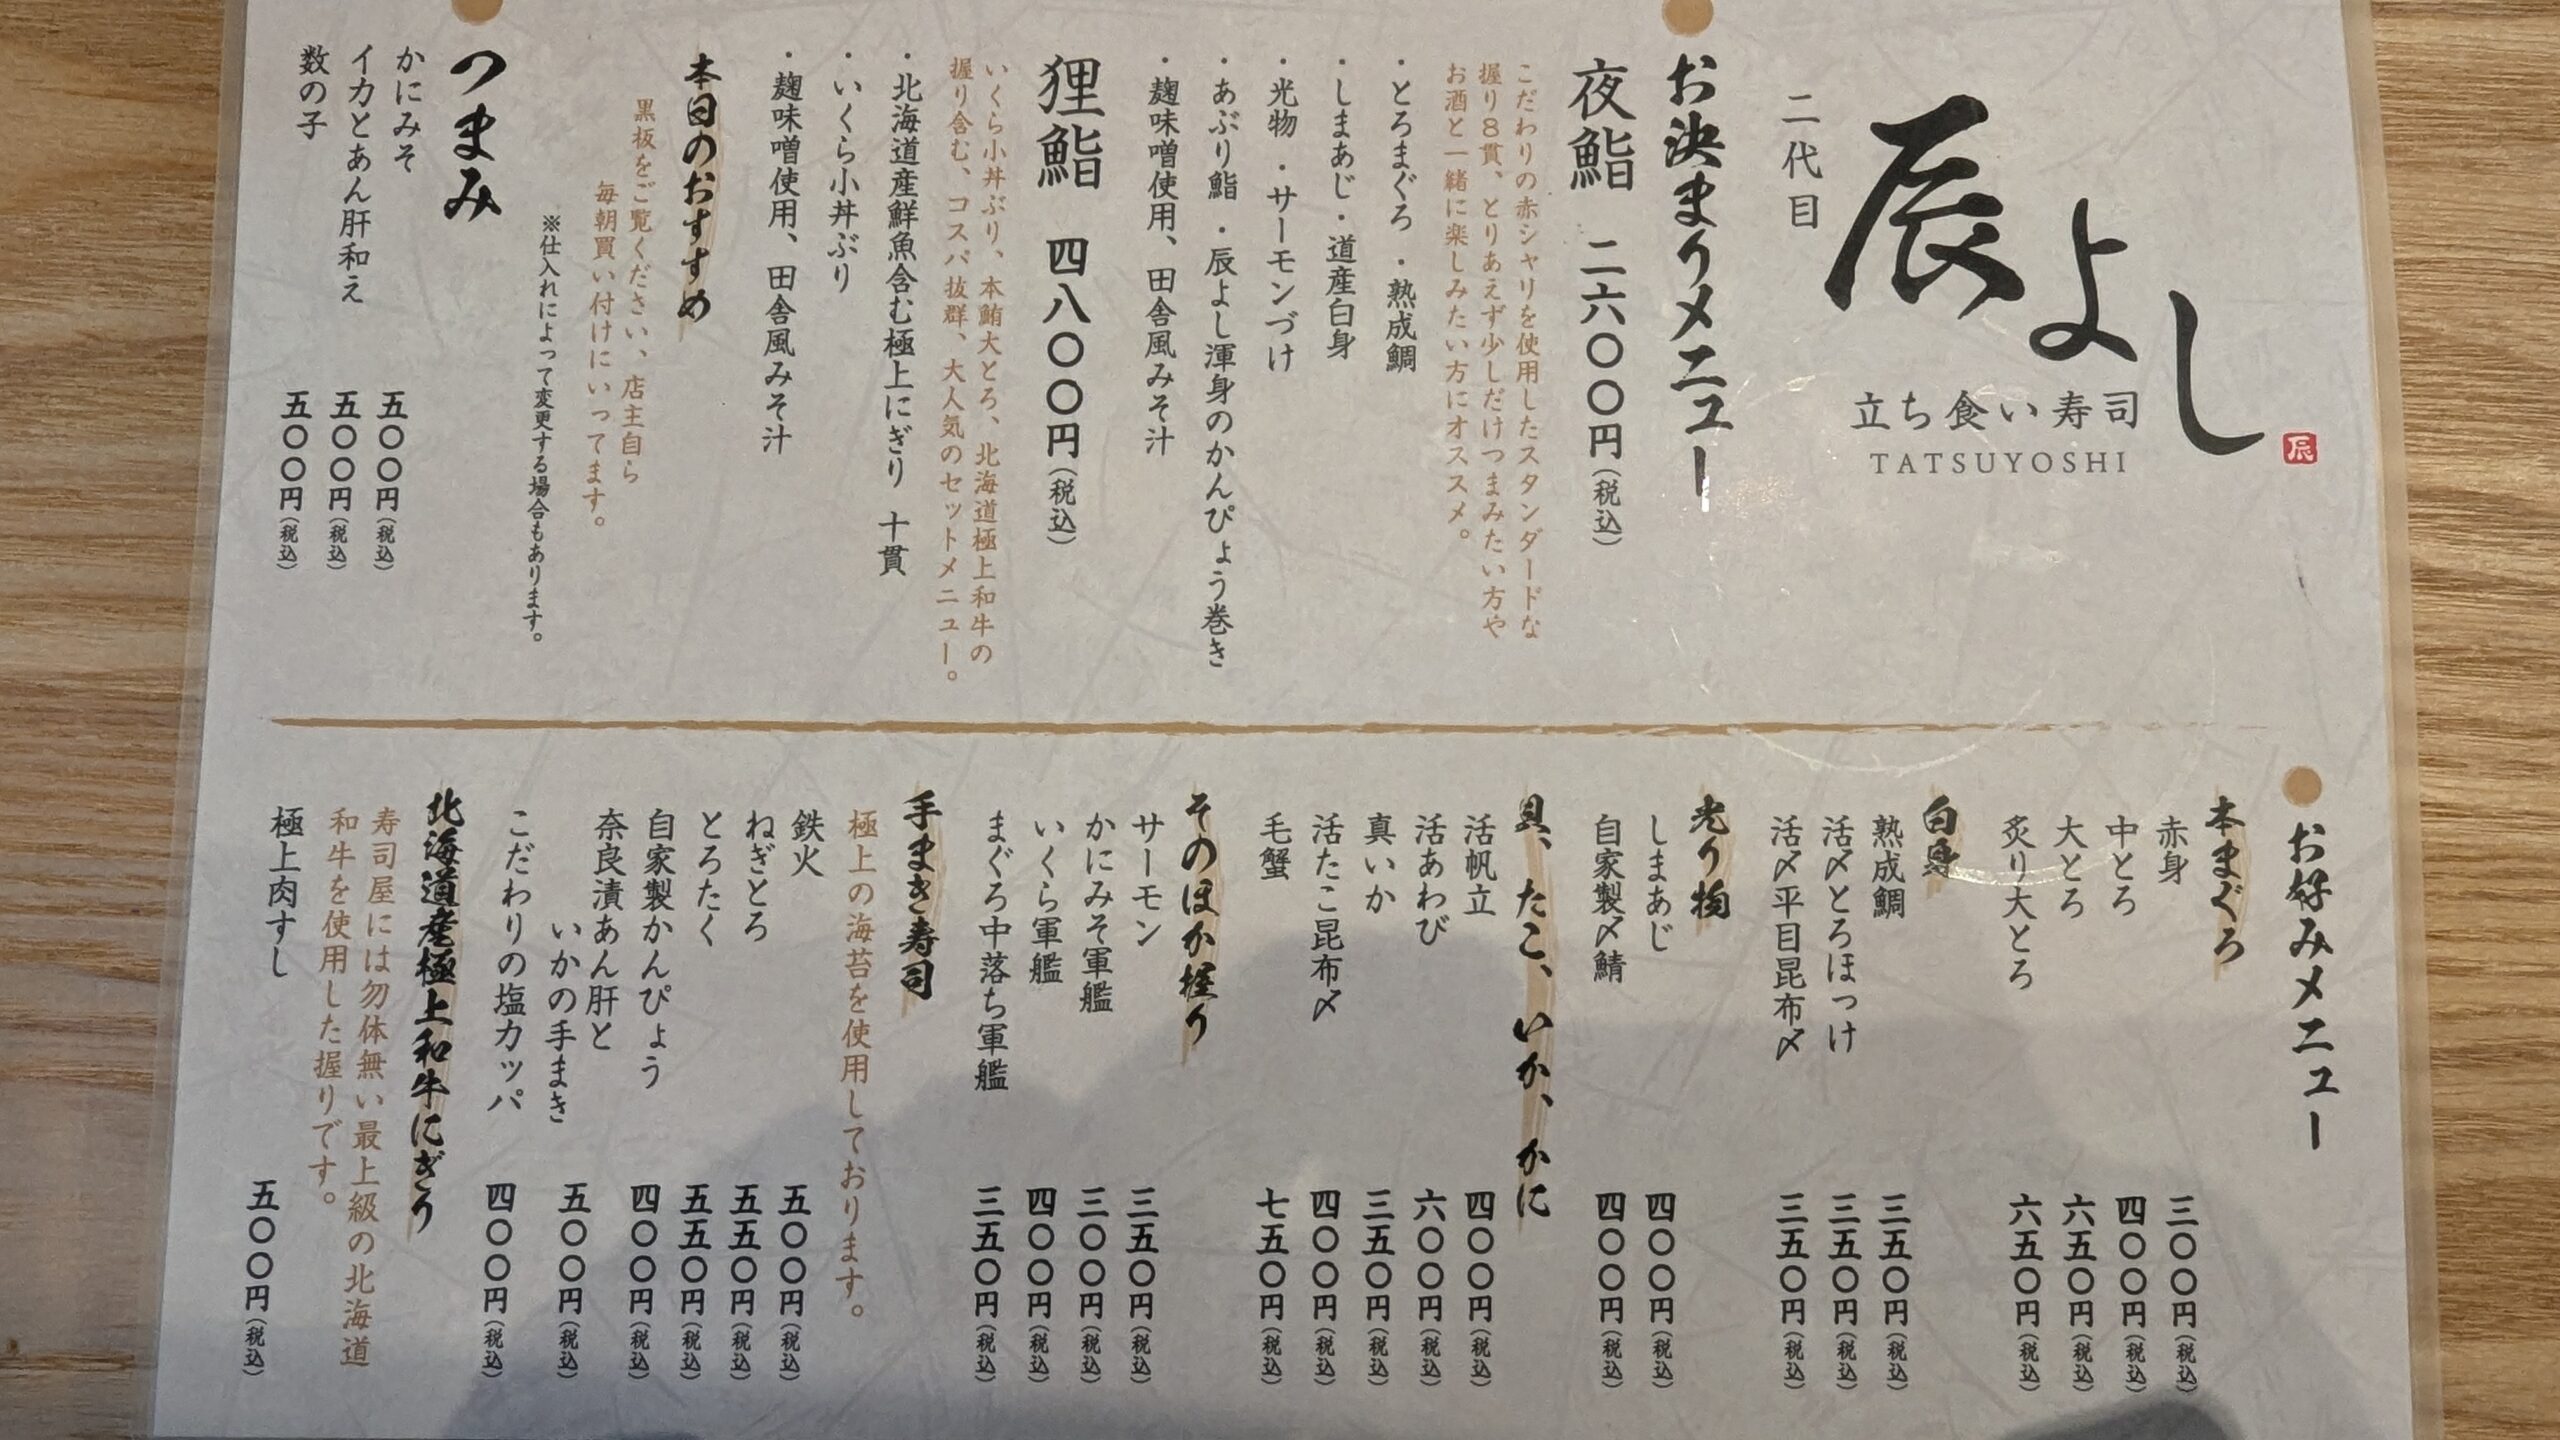 二代目
辰よし
辰
立ち食い寿司
TATSUYOSHI
お決まりメニュー
夜鮨 二六〇〇円(税込)
こだわりの赤シャリを使用したスタンダードな
握り8貫、とりあえず少しだけつまみたい方や
お酒と一緒に楽しみたい方にオススメ。
・とろまぐろ ・熟成鯛
・しまあじ・道産白身
・光物 ・サーモンづけ
・あぶり鮨 ・辰よし渾身のかんぴょう巻き
・麹味噌使用、田舎風みそ汁
狸鮨 四八〇〇円(税込)
いくら小丼ぶり、本鮪大とろ、北海道極上和牛の
握り含む、コスパ抜群、大人気のセットメニュー。
・北海道産鮮魚含む極上にぎり 十貫
・いくら小丼ぶり
・麹味噌使用、田舎風みそ汁
本日のおすすめ
黒板をご覧ください、店主自ら
毎朝買い付けにいってます。
※仕入れによって変更する場合もあります。
つまみ
かにみそ 五〇〇円(税込)
イカとあん肝和え 五〇〇円(税込)
数の子 五〇〇円(税込)
お好みメニュー
本まぐろ
赤身 三〇〇円(税込)
中とろ 四〇〇円(税込)
大とろ 六五〇円(税込)
炙り大とろ 六五〇円(税込)
白身
熟成鯛 三五〇円(税込)
活〆とろほっけ 三五〇円(税込)
活〆平目昆布〆 三五〇円(税込)
光り物
しまあじ 四〇〇円(税込)
自家製〆鯖 四〇〇円(税込)
貝、たこ、いか、かに
活帆立 四〇〇円(税込)
活あわび 六〇〇円(税込)
真いか 三五〇円(税込)
活たこ昆布〆 四〇〇円(税込)
毛蟹 七五〇円(税込)
そのほか握り
サーモン 三五〇円(税込)
かにみそ軍艦 三〇〇円(税込)
いくら軍艦 四〇〇円(税込)
まぐろ中落ち軍艦 三五〇円(税込)
手まき寿司
極上の海苔を使用しております。
鉄火 五〇〇円(税込)
ねぎとろ 五五〇円(税込)
とろたく 五五〇円(税込)
自家製かんぴょう 四〇〇円(税込)
奈良漬あん肝と
いかの手まき 五〇〇円(税込)
こだわりの塩カッパ 四〇〇円(税込)
北海道産極上和牛にぎり
寿司屋には勿体無い最上級の北海道
和牛を使用した握りです。
極上肉すし 五〇〇円(税込)